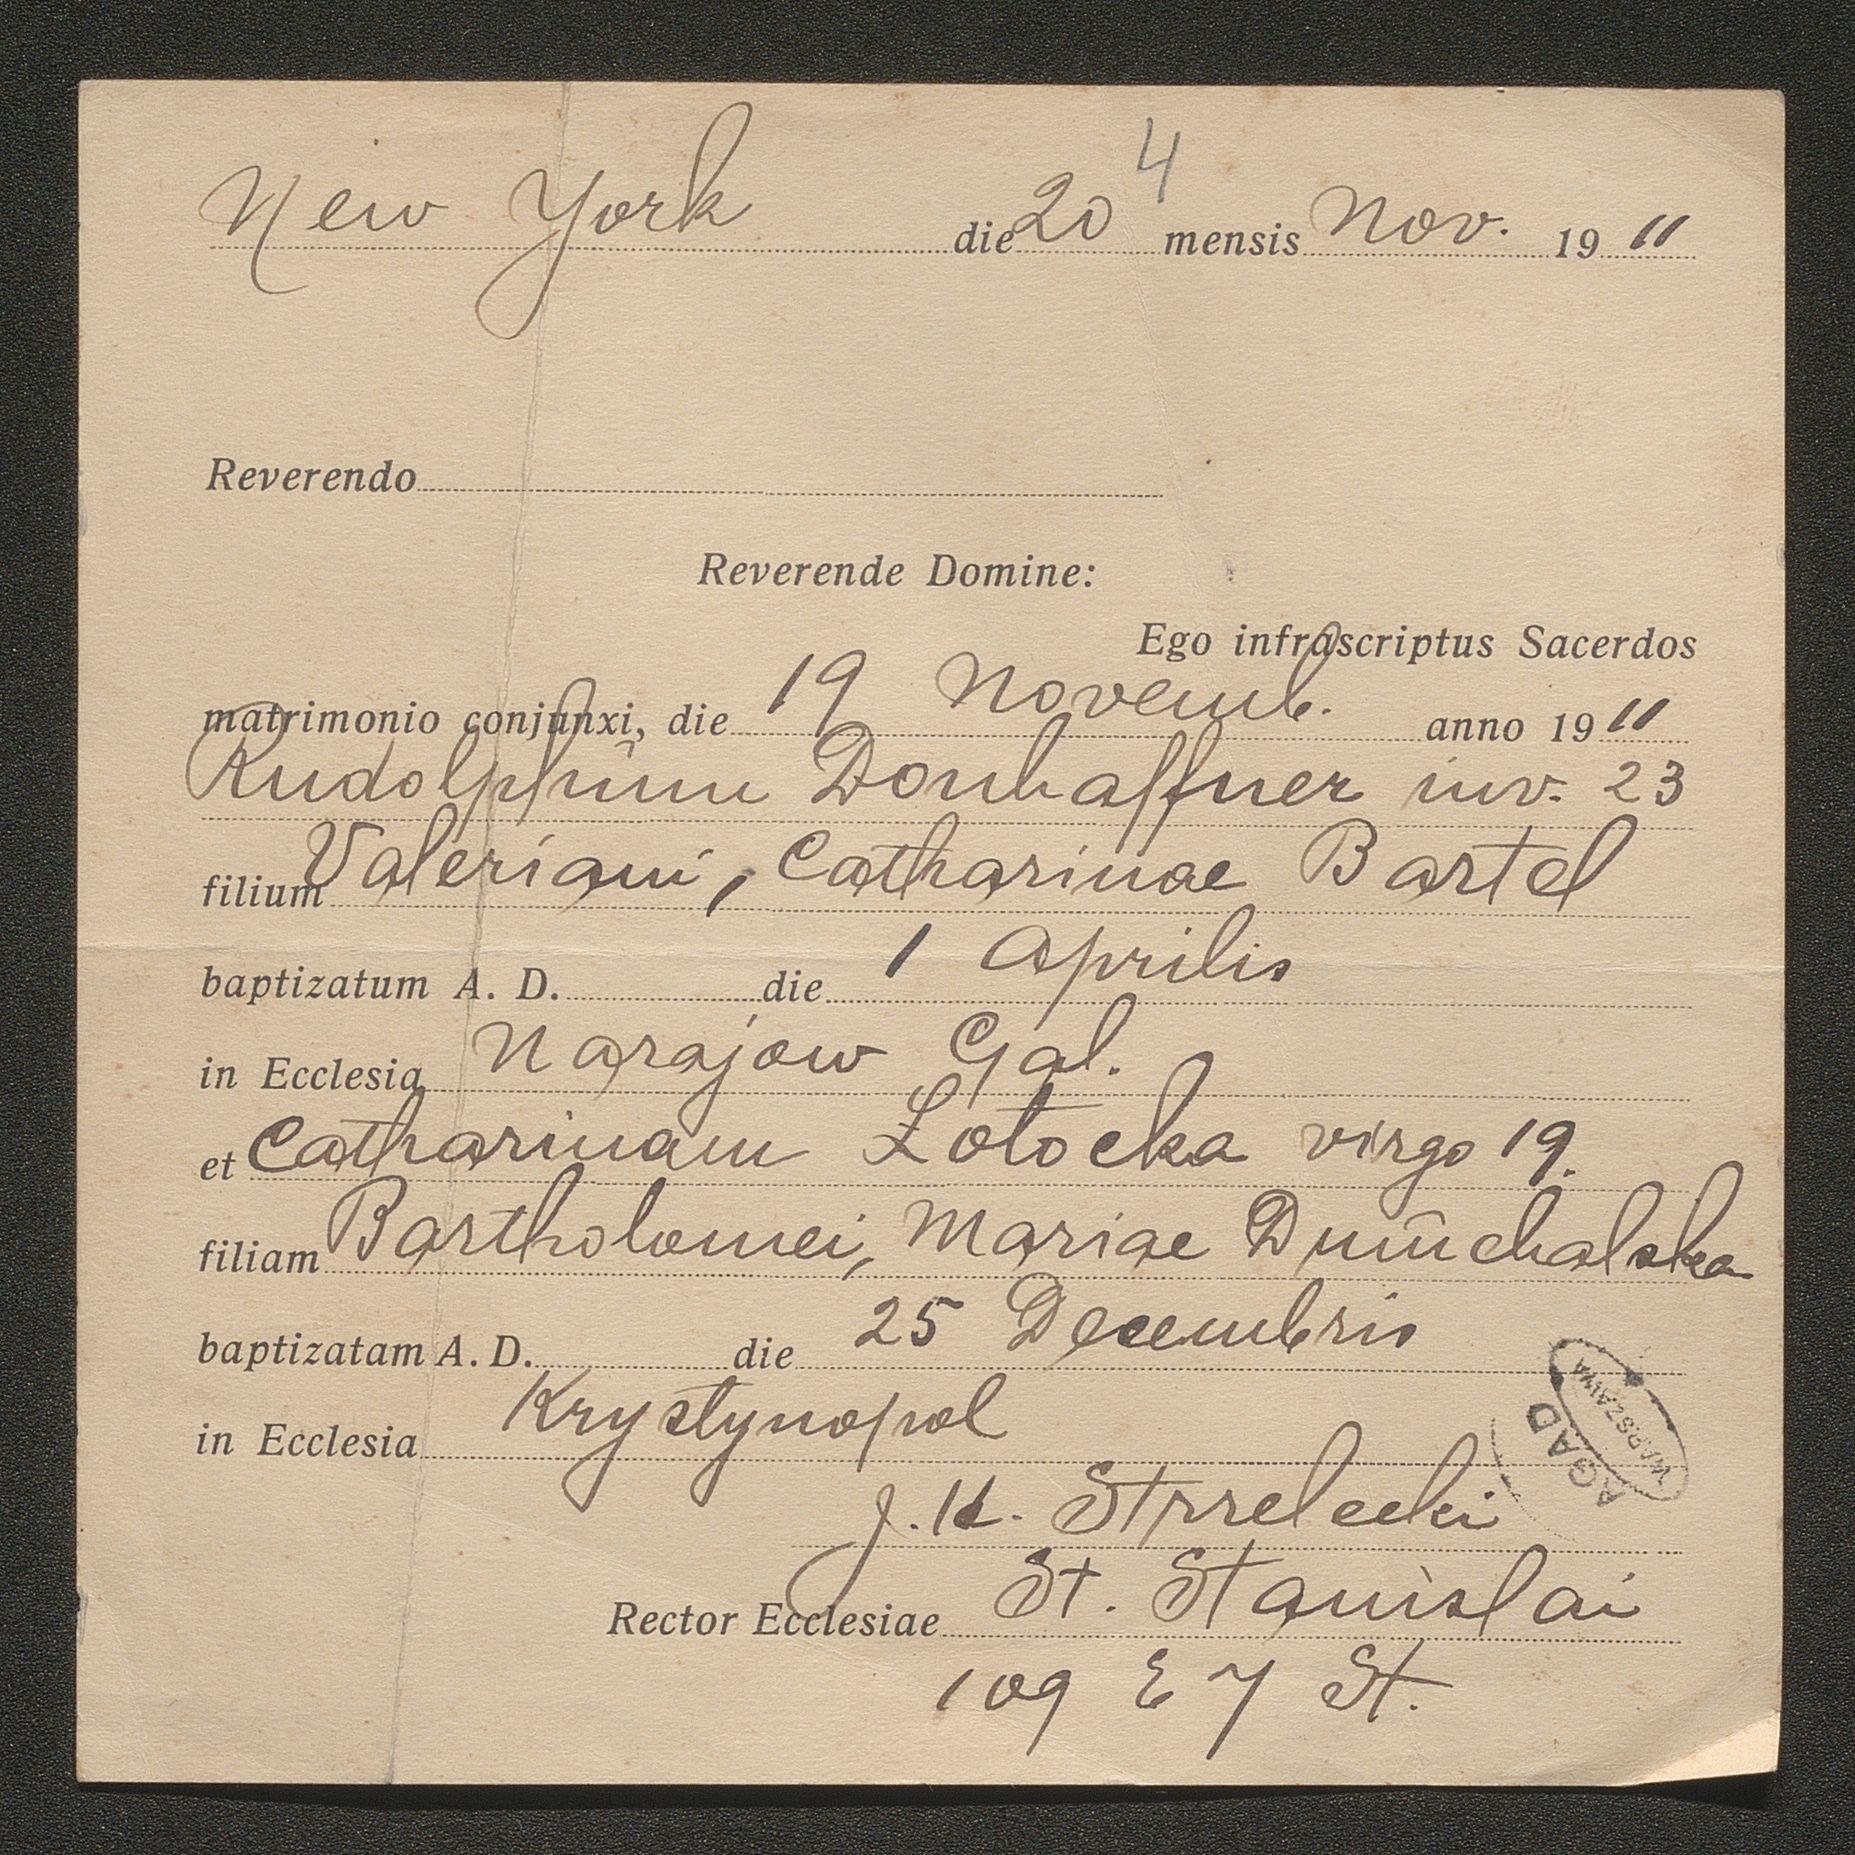 4
New York die 20 mensis Nov. 19 11
Reverendo
Reverende Domine:
Ego infrascriptus Sacerdos
matrimonio conjunxi, die 19 Novemb. anno 19 11
Rudolphum Donhaffner iuv. 23
filium Valeriani, Catharinae Bartel
baptizatum A. D. die 1 Aprilis
in Ecclesia Narajow Gal.
et Catharinam Łotocka virgo 19.
filiam Bartholomei, Mariae
baptizatam A. D. die 25 Decembris
in Ecclesia Krystynopol
J. H. Strzelecki
Rector Ecclesiae St. Stanislai
109 E 7 St.
AGAD
WARSZAWA